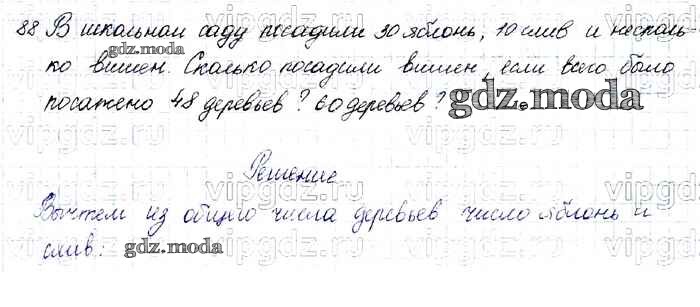 88 В школьном саду посадили 30 яблонь, 10 слив и несколь-
gdz.moda
ко вишен. Сколько посадили вишен, если всего было
посажено 48 деревьев? 60 деревьев?
gdz.moda
Решение
Вычтем из общего числа деревьев число яблонь и
слив:
gdz.moda